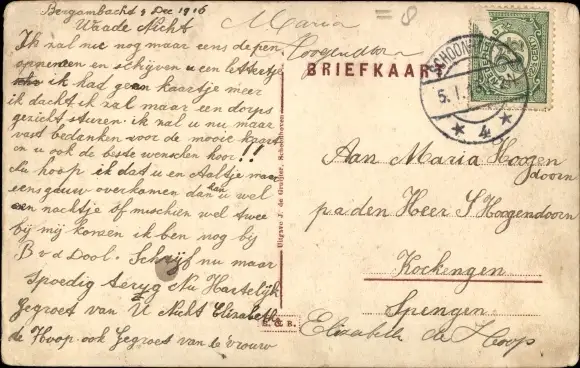 Bergambacht 3 Dec 1916
Waade Nicht
Ik zal nu nog maar eens de pen
opnemen en schijven u een lettertje
ik had geen kaartje meer
ik dacht ik zal maar een dorps
gezicht sturen. ik zal u nu maar
vast bedanken voor de mooie kaart
en u ook de beste wenschen hoor!!
Nu hoop ik dat u en Aaltje maar
eens gauw overkomen dan kan u wel
een nachtje of mischien wel twee
bij mij komen ik ben nog bij
B v d Dool. Schrijf nu maar
spoedig terug Nu Hartelijk
Gegroet van U Nicht Elizabeth
de Hoop ook Gegroet van de vrouw
Maria
Hoogendoorn
= 8
BRIEFKAART
SCHOONH
5.1.
4
NEDERLAND
Uitgave J. de Gruijter, Schoonhoven
S. & B.
Aan Maria Hoogen
doorn
p.a den Heer S Hoogendoorn
Kockengen
Spengen
Elizabeth de Hoop